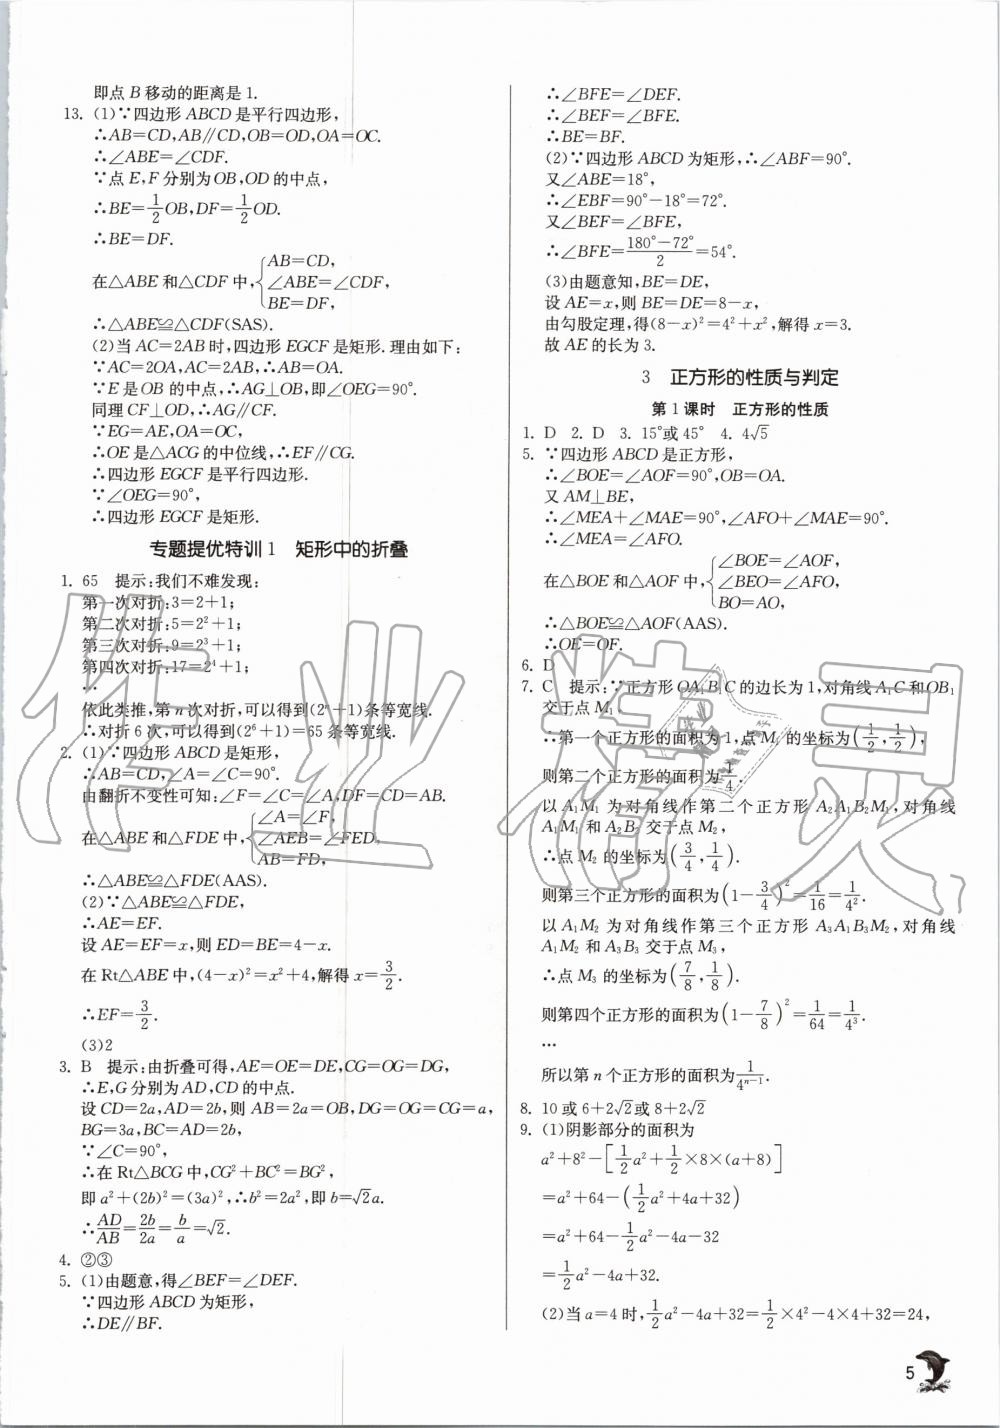 即点 B 移动的距离是 1.
13. (1)∵四边形 ABCD 是平行四边形,
∴AB=CD,AB∥CD,OB=OD,OA=OC.
∴∠ABE=∠CDF.
∵点 E,F 分别为 OB,OD 的中点,
∴BE=1/2 OB,DF=1/2 OD.
∴BE=DF.
在△ABE 和△CDF 中,{AB=CD,
∠ABE=∠CDF,
BE=DF,
∴△ABE≌△CDF(SAS).
(2)当 AC=2AB 时,四边形 EGCF 是矩形.理由如下:
∵AC=2OA,AC=2AB,∴AB=OA.
∵E 是 OB 的中点,∴AG⊥OB,即∠OEG=90°.
同理 CF⊥OD,∴AG∥CF.
∵EG=AE,OA=OC,
∴OE 是△ACG 的中位线,∴EF∥CG.
∴四边形 EGCF 是平行四边形.
∵∠OEG=90°,
∴四边形 EGCF 是矩形.
专题提优特训 1 矩形中的折叠
1. 65 提示:我们不难发现:
第一次对折:3=2+1;
第二次对折:5=2²+1;
第三次对折:9=2³+1;
第四次对折:17=2⁴+1;
…
依此类推,第 n 次对折,可以得到(2ⁿ+1)条等宽线.
∴对折 6 次,可以得到(2⁶+1)=65 条等宽线.
2. (1)∵四边形 ABCD 是矩形,
∴AB=CD,∠A=∠C=90°.
由翻折不变性可知:∠F=∠C=∠A,DF=CD=AB.
在△ABE 和△FDE 中,{∠A=∠F,
∠AEB=∠FED,
AB=FD,
∴△ABE≌△FDE(AAS).
(2)∵△ABE≌△FDE,
∴AE=EF.
设 AE=EF=x,则 ED=BE=4-x.
在 Rt△ABE 中,(4-x)²=x²+4,解得 x=3/2.
∴EF=3/2.
(3)2
3. B 提示:由折叠可得,AE=OE=DE,CG=OG=DG,
∴E,G 分别为 AD,CD 的中点.
设 CD=2a,AD=2b,则 AB=2a=OB,DG=OG=CG=a,
BG=3a,BC=AD=2b,
∵∠C=90°,
∴在 Rt△BCG 中,CG²+BC²=BG²,
即 a²+(2b)²=(3a)²,∴b²=2a²,即 b=√2a.
∴AD/AB=2b/2a=b/a=√2.
4. ②③
5. (1)由题意,得∠BEF=∠DEF.
∵四边形 ABCD 为矩形,
∴DE∥BF.
∴∠BFE=∠DEF.
∴∠BEF=∠BFE.
∴BE=BF.
(2)∵四边形 ABCD 为矩形,∴∠ABF=90°.
又∠ABE=18°,
∴∠EBF=90°-18°=72°.
又∠BEF=∠BFE,
∴∠BFE=(180°-72°)/2=54°.
(3)由题意知,BE=DE,
设 AE=x,则 BE=DE=8-x,
由勾股定理,得(8-x)²=4²+x²,解得 x=3.
故 AE 的长为 3.
3 正方形的性质与判定
第 1 课时 正方形的性质
1. D 2. D 3. 15°或 45° 4. 4√5
5. ∵四边形 ABCD 是正方形,
∴∠BOE=∠AOF=90°,OB=OA.
又 AM⊥BE,
∴∠MEA+∠MAE=90°,∠AFO+∠MAE=90°.
∴∠MEA=∠AFO.
在△BOE 和△AOF 中,{∠BOE=∠AOF,
∠BEO=∠AFO,
BO=AO,
∴△BOE≌△AOF(AAS).
∴OE=OF.
6. D
7. C 提示:∵正方形 OA₁B₁C 的边长为 1,对角线 A₁C 和 OB₁
交于点 M₁,
∴第一个正方形的面积为 1,点 M₁ 的坐标为(1/2,1/2),
则第二个正方形的面积为 1/4.
以 A₁M₁ 为对角线作第二个正方形 A₂A₁B₂M₁,对角线
A₁M₁ 和 A₂B₂ 交于点 M₂,
∴点 M₂ 的坐标为(3/4,1/4).
则第三个正方形的面积为(1-3/4)²=1/16=1/4².
以 A₁M₂ 为对角线作第三个正方形 A₃A₁B₃M₂,对角线
A₁M₂ 和 A₃B₃ 交于点 M₃,
∴点 M₃ 的坐标为(7/8,1/8).
则第四个正方形的面积为(1-7/8)²=1/64=1/4³.
…
所以第 n 个正方形的面积为 1/4ⁿ⁻¹.
8. 10 或 6+2√2或 8+2√2
9. (1)阴影部分的面积为
a²+8²-[1/2 a²+1/2×8×(a+8)]
=a²+64-(1/2 a²+4a+32)
=a²+64-1/2 a²-4a-32
=1/2 a²-4a+32.
(2)当 a=4 时,1/2 a²-4a+32=1/2×4²-4×4+32=24,
5
作业精灵